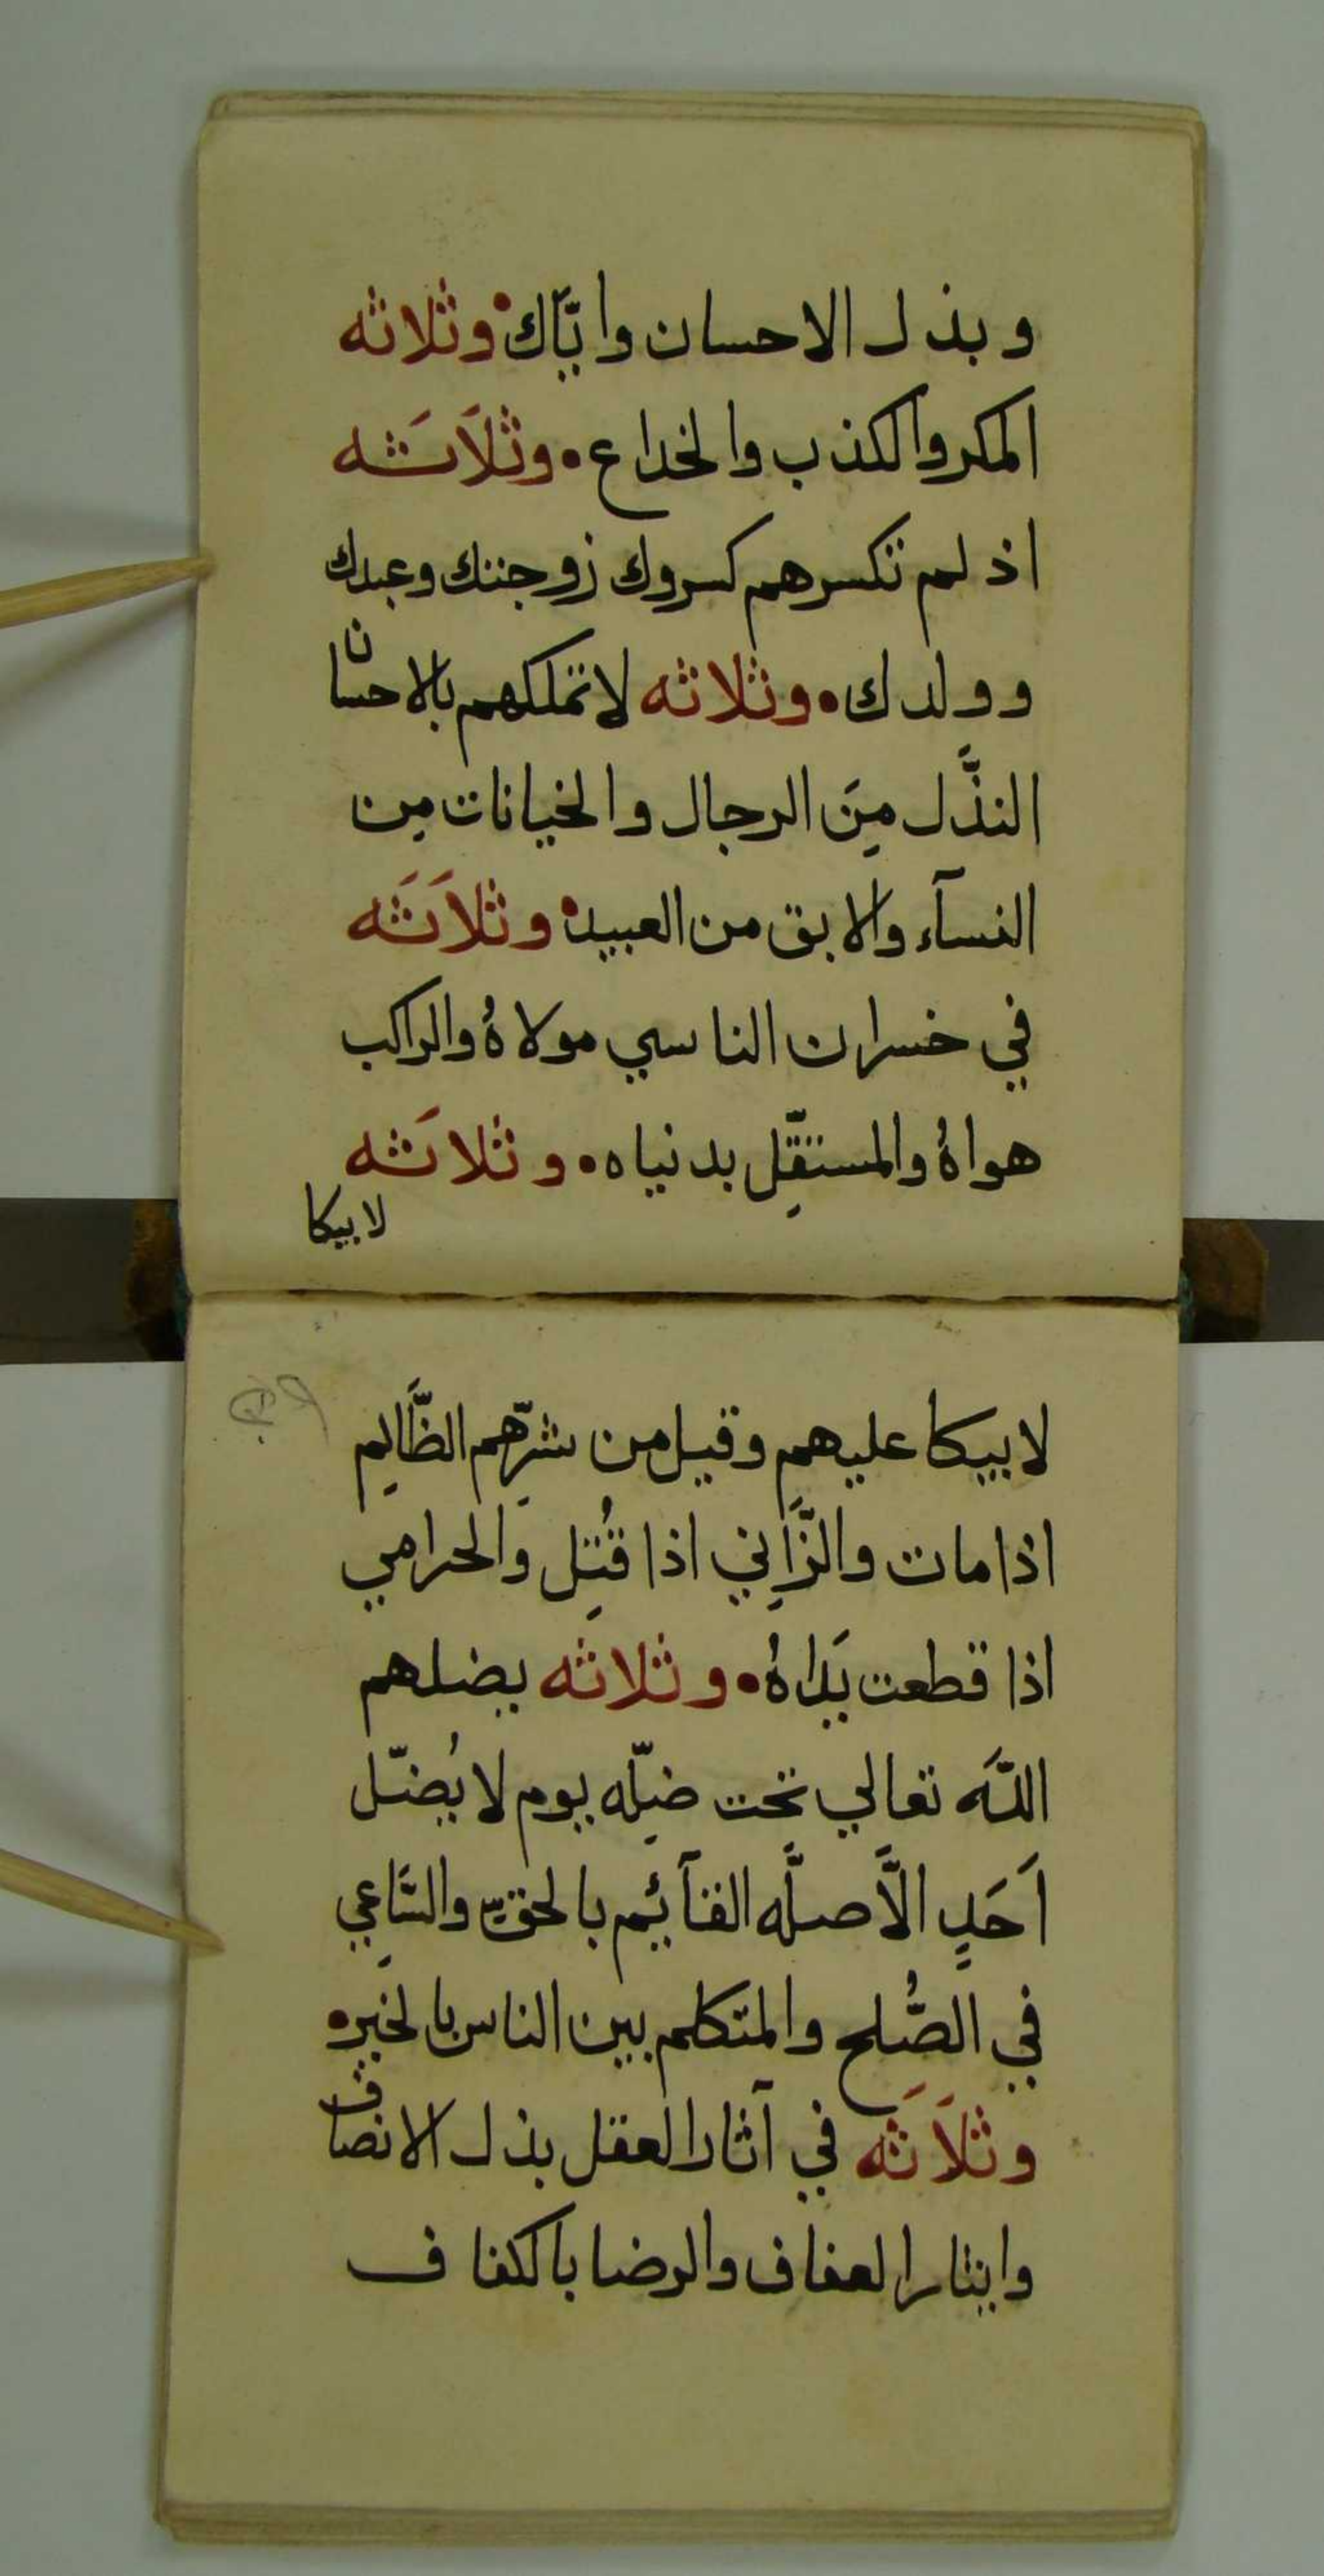 وبذل الاحسان وايّاك• وثلاثه
المكر والكذب والخداع • وثلاَثَه
اذ لم تكسرهم كسروك زوجتك وعبدك
وولدك • وثلاثه لا تملكهم بالاحسان
النذَّل مِنَ الرجال والخيانات مِن
النسآء والابق من العبيد• وثلاَثَه
في خسران الناسي مولاهُ والراكب
هواهُ والمستقِّل بدنياه • وثلاثَه
لا يبكا
لا يبكا عليهم وقيل من شرِّهم الظَّالِم
اذا مات والزَّاني اذا قُتِل والحرامي
اذا قطعت يَداهُ • وثلاثه يضلهم
اللَّه تعالي تحت ضِلّه يوم لا يُضّل
اَحَدٍ الَّا ضلَّه القآئِم بالحقِّ والسَّاعِي
في الصُّلح والمتكلم بين الناس بالخير•
وثلاَثَه في آثار العقل بذل الانصاف
وايثار العفاف والرضا باكفاف